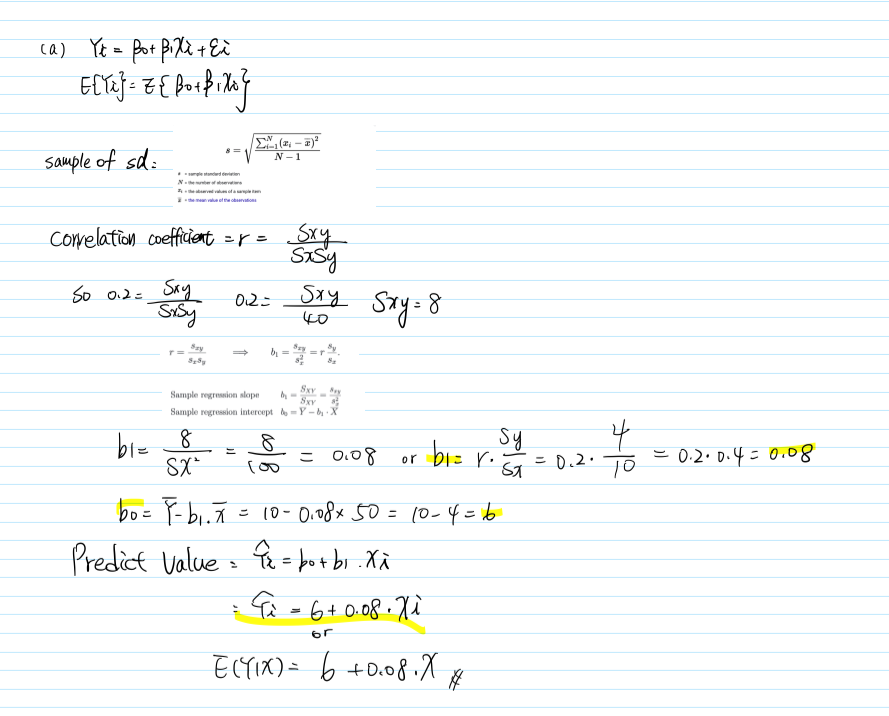 (a) Yt = β0 + β1Xi + εi
E{Yi} = E{β0 + β1Xi}
sample of sd: s = √(∑ᵢ₌₁ᴺ (xᵢ − x̄)² / (N − 1))
s = sample standard deviation
N = the number of observations
xᵢ = the observed values of a sample item
x̄ = the mean value of the observations
Correlation coefficient = r = Sxy / SxSy
So 0.2 = Sxy / SxSy 0.2 = Sxy / 40 Sxy = 8
r = s_xy / (s_x s_y) ⟹ b₁ = s_xy / s_x² = r s_y / s_x.
Sample regression slope b₁ = S_XY / S_XY = s_xy / s_x²
Sample regression intercept b₀ = Ȳ − b₁ · X̄
b1 = 8 / SX² = 8 / 100 = 0.08 or b1 = r · Sy / Sx = 0.2 · 4 / 10 = 0.2 · 0.4 = 0.08
b0 = Ȳ − b1 . x̄ = 10 − 0.08 × 50 = 10 − 4 = 6
Predict Value = Ŷi = b0 + b1 . Xi
= Ŷi = 6 + 0.08 . Xi
or
E(Y|X) = 6 + 0.08 . X #